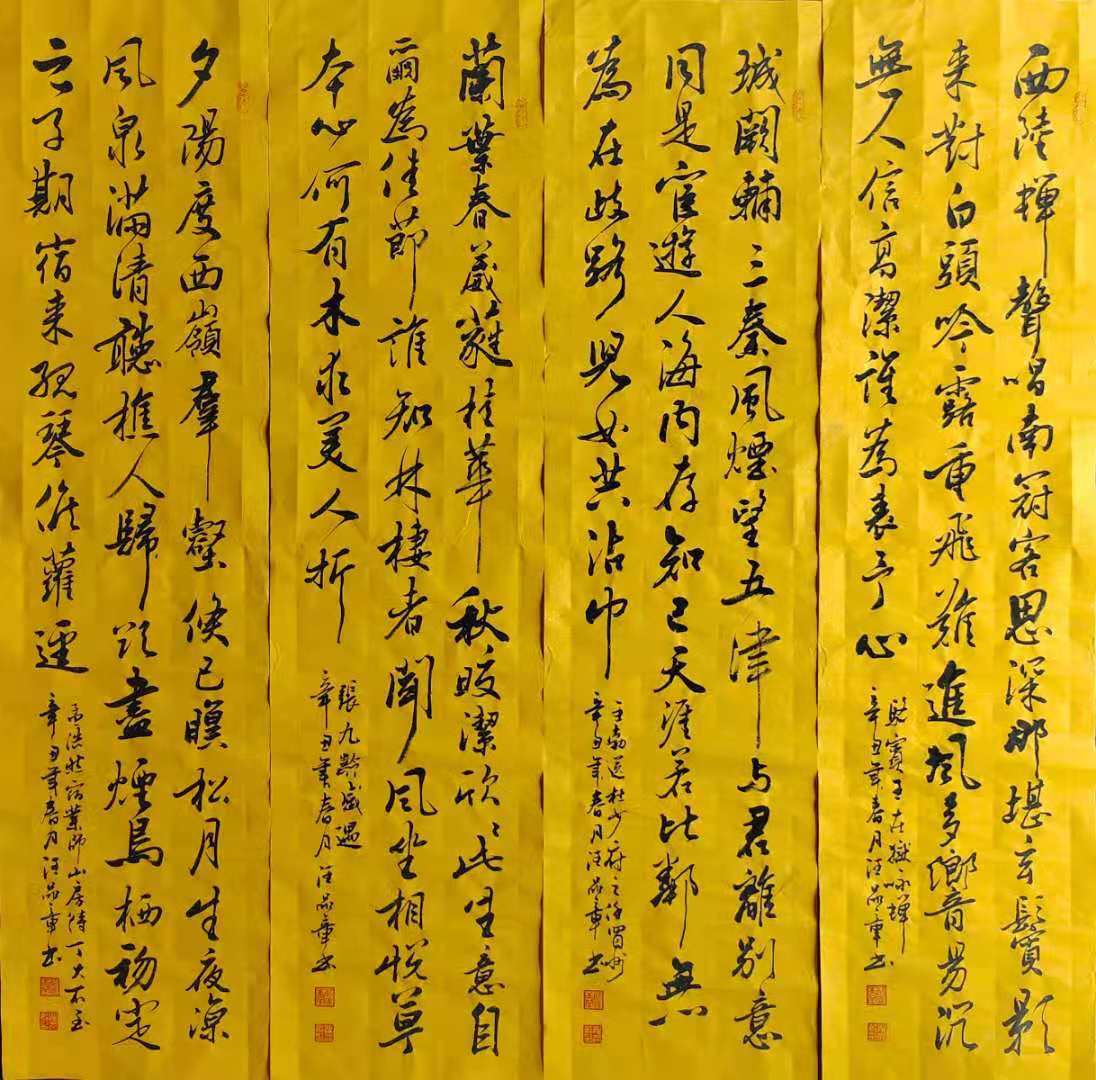 西陸蟬聲唱南冠客思深那堪玄鬢影
来對白頭吟露重飛難進風多響易沉
無人信高潔誰為表予心
駱賓王在獄咏蟬
辛丑年春月汪品章书
城闕輔三秦風煙望五津与君離别意
同是宦遊人海内存知己天涯若比鄰無
為在歧路兒女共沾巾
王勃送杜少府之任蜀州
辛丑年春月汪品章书
蘭葉春葳蕤桂華秋皎潔欣欣此生意自
爾為佳節誰知林棲者聞風坐相悅草
本心何有木求美人折
張九齡感遇
辛丑年春月汪品章书
夕陽度西嶺羣壑倏已暝松月生夜凉
風泉滿清聽樵人歸欲盡煙鳥栖初定
之子期宿来孤琴候蘿逕
孟浩然宿業師山房待丁大不至
辛丑年春月汪品章书